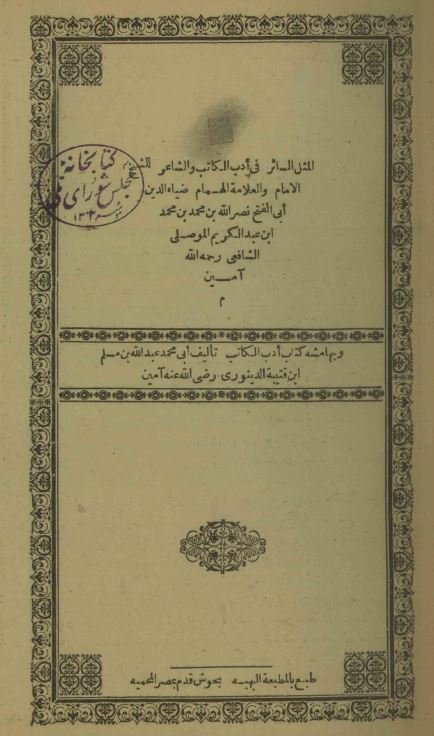 المثل السائر فى أدب الكاتب والشاعر
الامام والعلامة الهمام ضياء الدين
أبى الفتح نصر الله بن محمد بن محمد
ابن عبد الكريم الموصلى
الشافعى رحمه الله
آمين
م
كتابخانه
مجلس شوراى ملى
وبهامشه كتاب أدب الكاتب تأليف أبى محمد عبد الله بن مسلم
ابن قتيبة الدينورى رضى الله عنه آمين
طبع بالمطبعة البهيه بحوش قدم بمصر المحميه